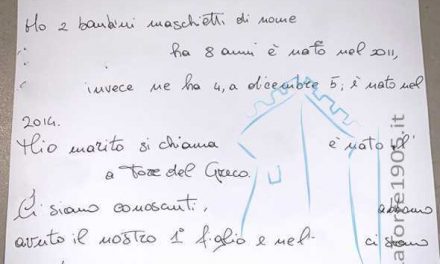 Ho 2 bambini maschietti di nome
ha 8 anni è nato nel 2011,
invece ne ha 4, a dicembre 5, è nato nel
2014.
Mio marito si chiama è nato il
a Torre del Greco.
Ci siamo conosciuti, abbiamo
avuto il nostro 1° figlio e nel ci siamo
latorre1905.it